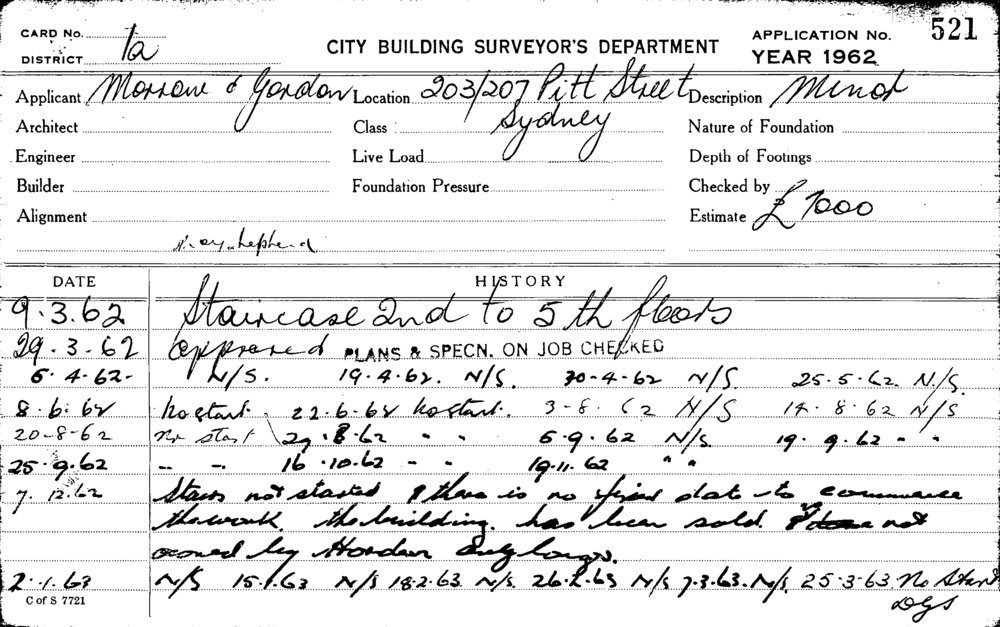 CARD No. 1a CITY BUILDING SURVEYOR'S DEPARTMENT APPLICATION No. 521
DISTRICT YEAR 1962
Applicant Morrow & Gordon Location 203/207 Pitt Street Description Minor
Architect Class Sydney Nature of Foundation
Engineer Live Load Depth of Footings
Builder Foundation Pressure Checked by
Alignment Estimate £ 7000
DATE HISTORY
9.3.62 Staircase 2nd to 5th floors
29.3-62 approved PLANS & SPECN. ON JOB CHECKED
5.4-62- N/S. 19.4.62. N/S. 30-4-62 N/S. 25.5.62. N/S
8.6.62 No start. 22.6.62 No start. 3-8.62 N/S 14.8.62 N/S
20-8-62 No start 29.8.62 " " 6.9.62 N/S 19.9.62 " "
25.9.62 " " 16.10.62 " " 19.11.62 " "
7.12.62 Stairs not started & there is no fixed date to commence
the work. the building has been sold. not
owned by Hordern any longer.
2.1.63 N/S 15.1.63 N/S 18.2.63. N/S. 26.2.63 N/S 7.3.63. N/S. 25-3-63. No Start
C of S 7721 DGS